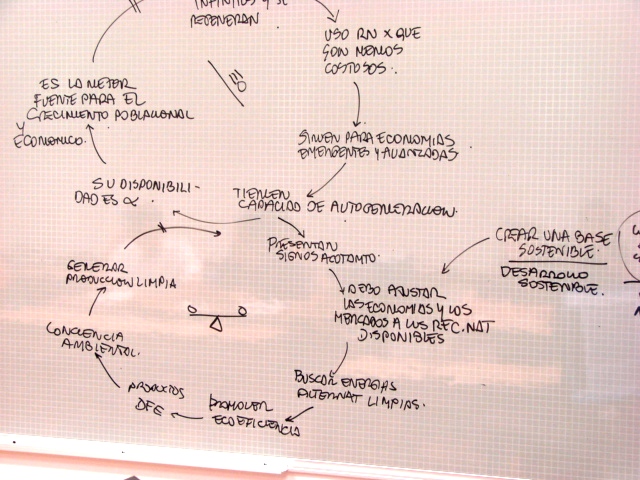 INFINITOS Y SE
REGENERAN
USO RN X QUE
SON MENOS
COSTOSOS.
ES LA MEJOR
FUENTE PARA EL
CRECIMIENTO POBLACIONAL
Y
ECONOMICO.
SIRVEN PARA ECONOMIAS
EMERGENTES Y AVANZADAS
SU DISPONIBILI-
DAD ES ∝
TIENEN
CAPACIDAD DE AUTOGENERACION.
PRESENTAN
SIGNOS AGOTAMTO
CREAR UNA BASE
SOSTENIBLE.
DESARROLLO
SOSTENIBLE.
GENERAR
PRODUCCION LIMPIA
DEBO AJUSTAR
LAS ECONOMIAS Y LOS
MERCADOS A LOS REC. NAT
DISPONIBLES
CONCIENCIA
AMBIENTAL.
BUSCAR ENERGIAS
ALTERNAT LIMPIAS.
PRODUCTOS
DFE
PROMOVER
ECOEFICIENCIA